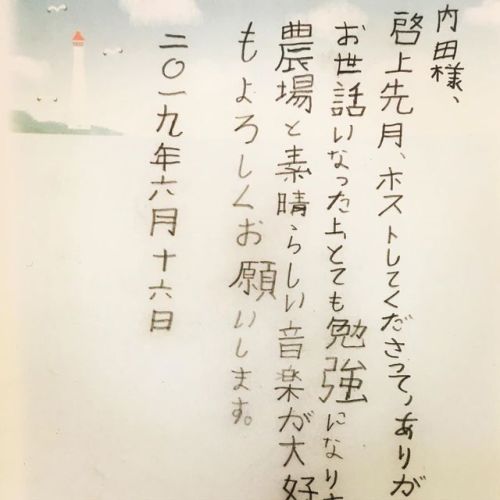 内田様、
啓上先月、ホストしてくださって、ありが
お世話いなった上、とても勉強になり
農場と素晴らしい音楽が大好
もよろしくお願いします。
二〇一九年六月十六日